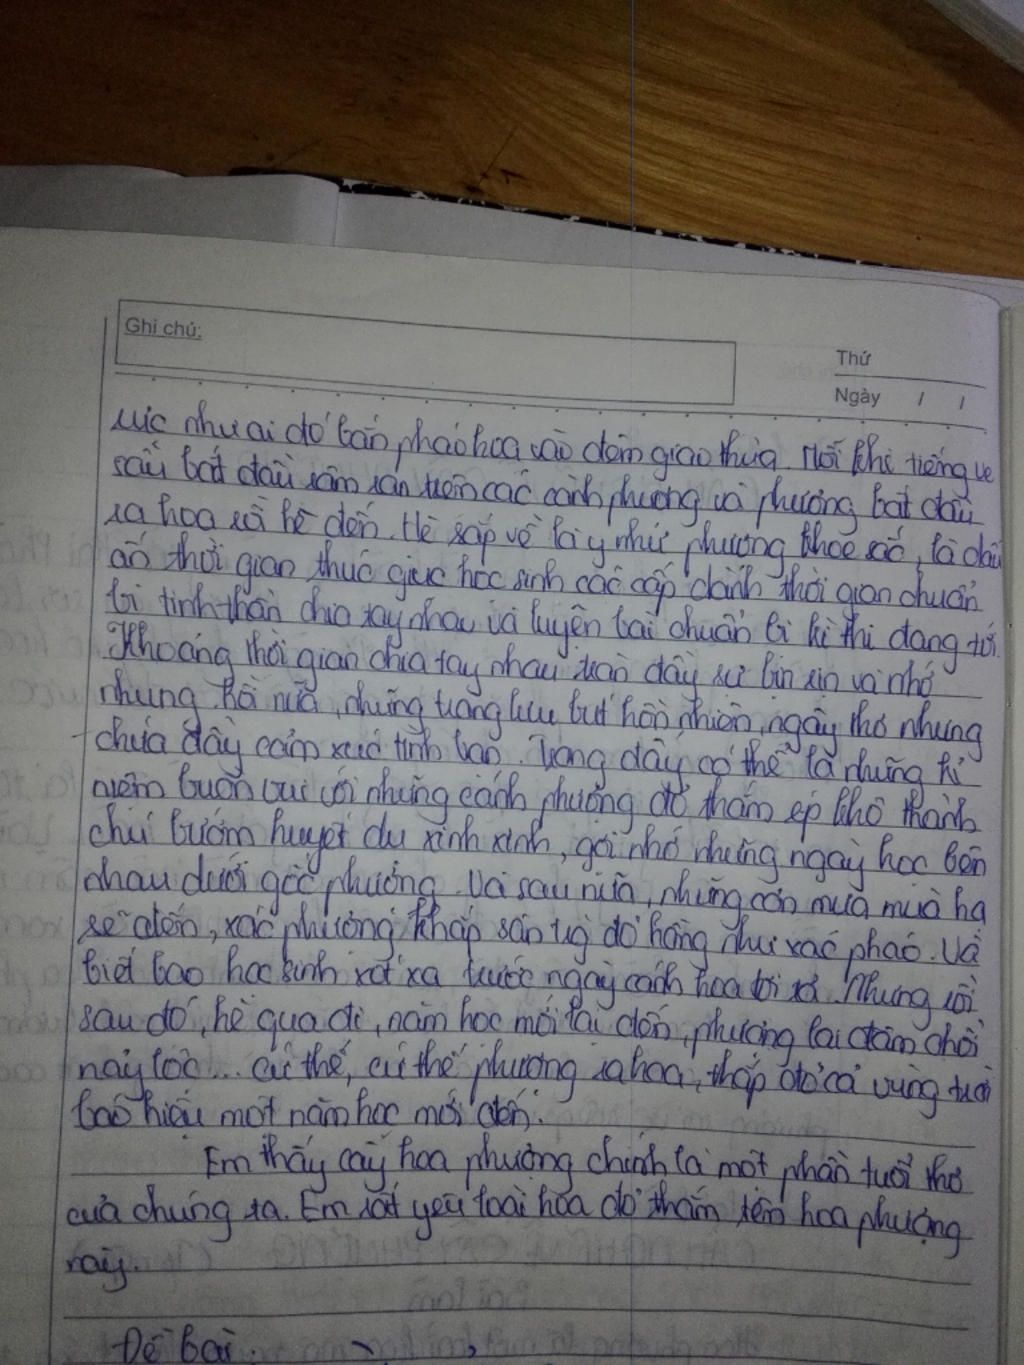 Ghi chú:
Thứ
Ngày / /
rực như ai đó bắn pháo hoa vào đêm giao thừa. Mỗi khi tiếng ve
sầu bắt đầu râm ran trên các cành phượng và phượng bắt đầu
ra hoa là hè đến. Hè sắp về là y như phượng khoe sắc, là dấu
ấn thời gian thúc giục học sinh các cấp dành thời gian chuẩn
bị tinh thần chia tay nhau và luyện bài chuẩn bị kì thi đang tới.
Khoảng thời gian chia tay nhau tràn đầy sự bịn rịn và nhớ
nhung. Rồi nữa, những trang lưu bút hồn nhiên, ngây thơ nhưng
chứa đầy cảm xúc tình bạn. Trong đấy có thể là những kỉ
niệm buồn vui với những cánh phượng đỏ thắm ép khô thành
chú bướm huyết dụ xinh xinh, gợi nhớ những ngày học bên
nhau dưới gốc phượng. Và sau nữa, những cơn mưa mùa hạ
sẽ đến, xác phượng khắp sân rụng đỏ hồng như xác pháo. Và
biết bao học sinh xót xa trước ngày cánh hoa tơi tả. Nhưng rồi
sau đó, hè qua đi, năm học mới lại đến, phượng lại đâm chồi
nảy lộc... cứ thế, cứ thế phượng ra hoa, thắp đỏ cả vùng trời
báo hiệu một năm học mới đến.
Em thấy cây hoa phượng chính là một phần tuổi thơ
của chúng ta. Em rất yêu loài hoa đỏ thắm tên hoa phượng
này.
Đề bài: